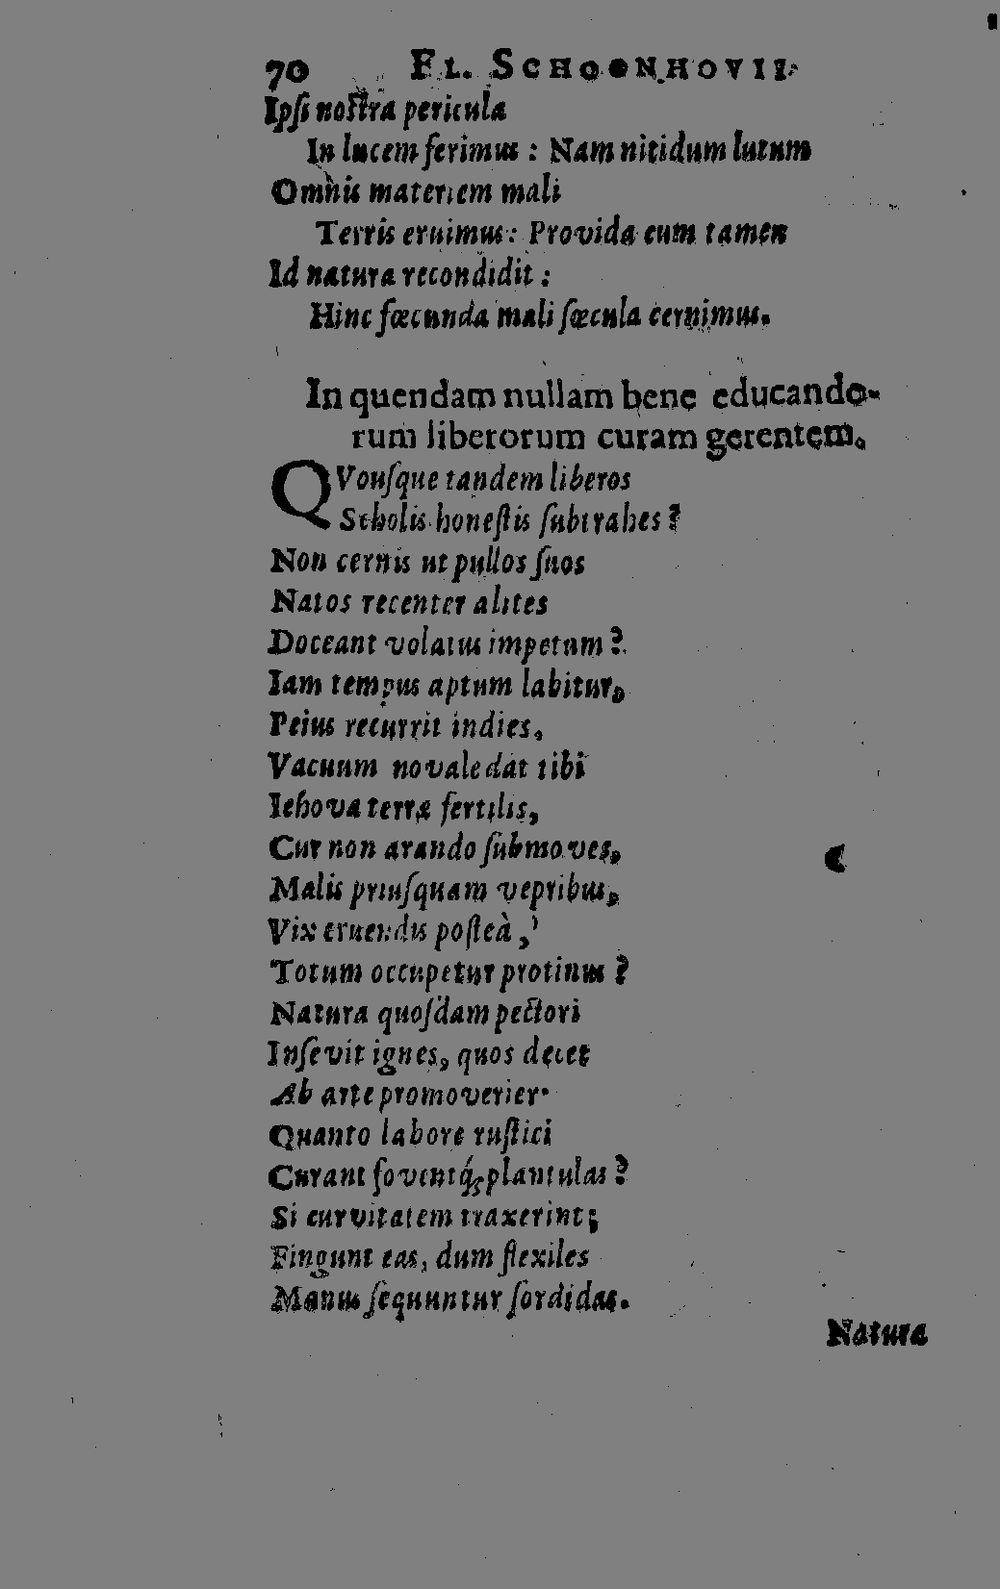 70 FL. SCHOONHOVII
Ipſi noſtra pericula
In lucem ferimus : Nam nitidum lutum
Omnis materiem mali
Terris eruimus : Provida cum tamen
Id natura recondidit :
Hinc fœcunda mali ſœcula cernimus.
In quendam nullam bene educando-
rum liberorum curam gerentem.
QVouſque tandem liberos
Scholis honeſtis ſubtrahes ?
Non cernis ut pullos ſuos
Natos recenter alites
Doceant volatus impetum ?
Iam tempus aptum labitur,
Peius recurrit indies,
Vacuum novale dat tibi
Iehova terræ fertilis,
Cur non arando ſubmoves,
Malis priuſquam vepribus,
Vix eruendis poſteà,
Totum occupetur protinus ?
Natura quoſdam pectori
Inſevit ignes, quos decet
Ab arte promoverier.
Quanto labore ruſtici
Curant foventq́; plantulas ?
Si curvitatem traxerint;
Fingunt eas, dum flexiles
Manus ſequuntur ſordidas.
Natura